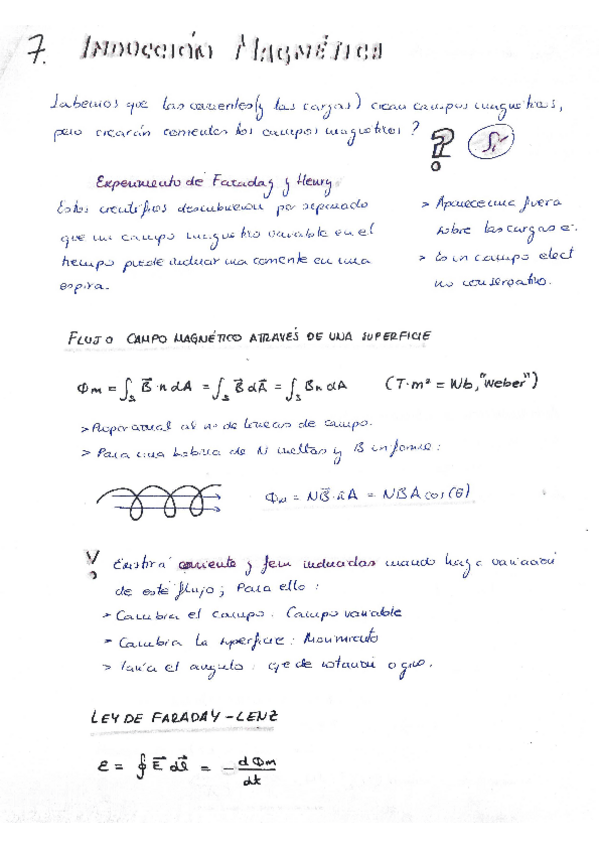 7. INDUCCIÓN MAGNÉTICA
Sabemos que las corrientes (y las cargas) crean campos magnéticos,
pero crearán corrientes los campos magnéticos? ? Sí
Experimento de Faraday y Henry.
Estos científicos descubrieron por separado
que un campo magnético variable en el
tiempo puede inducir una corriente en una
espira.
> Aparece una fuerza
sobre las cargas e-.
> Es un campo elect
no conservativo.
FLUJO CAMPO MAGNÉTICO ATRAVÉS DE UNA SUPERFICIE
Φm = ∫s B⃗·n dA = ∫s B⃗ dA⃗ = ∫s Bn dA (T·m² = Wb, "Weber")
> Proporcional al nº de líneas de campo.
> Para una bobina de N vueltas y B uniforme:
Φm = NB⃗·n̂A = NBA cos(θ)
Existirá corriente y fem inducidas cuando haya variación
de este flujo; Para ello:
> Cambia el campo. Campo variable
> Cambia la superficie: Movimiento
> Varía el ángulo: eje de rotación o giro.
LEY DE FARADAY-LENZ
ε = ∮ E⃗ dl⃗ = - dΦm/dt